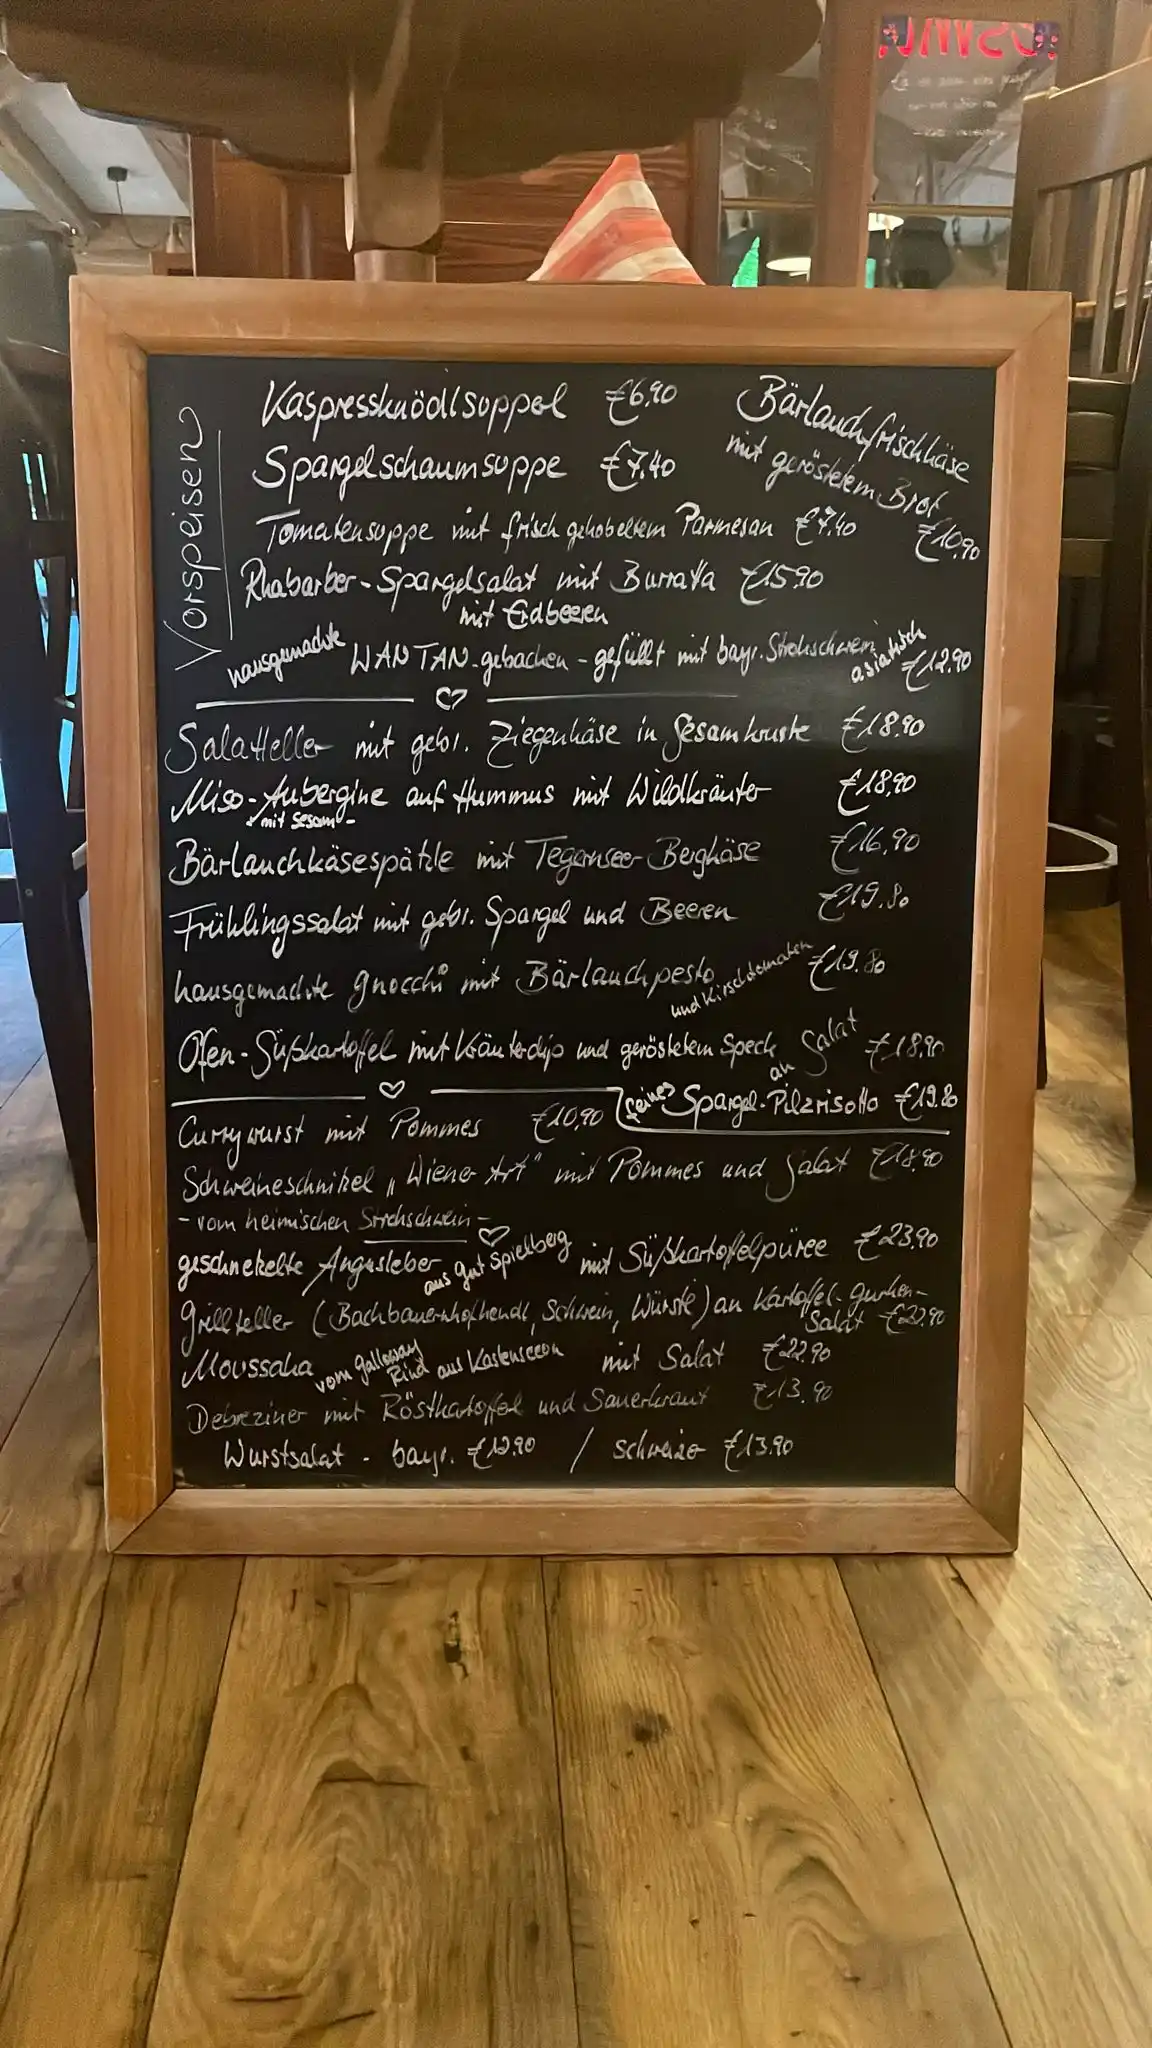 Vorspeisen
Kaspressknödlsuppe € 6,90
Bärlauchfrischkäse
mit geröstetem Brot
€ 10,90
Spargelschaumsuppe € 7,40
Tomatensuppe mit frisch gehobeltem Parmesan € 7,40
Rhabarber-Spargelsalat mit Burrata € 15,90
mit Erdbeeren
hausgemachte WAN TAN - gebacken - gefüllt mit bayr. Strohschwein asiatisch € 12,90
Salatteller mit gebr. Ziegenkäse in Sesamkruste € 18,90
Miso-Aubergine auf Hummus mit Wildkräuter € 18,90
- mit Sesam -
Bärlauchkäsespätzle mit Tegernseer Bergkäse € 16,90
Frühlingssalat mit gebr. Spargel und Beeren € 19,80
hausgemachte Gnocchi mit Bärlauchpesto und Kirschtomaten € 19,80
Ofen-Süßkartoffel mit Kräuterdip und geröstetem Speck an Salat € 18,90
feines Spargel-Pilzrisotto € 19,80
Currywurst mit Pommes € 10,90
Schweineschnitzel „Wiener Art" mit Pommes und Salat € 18,90
- vom heimischen Strohschwein -
geschnetzelte Angusleber aus Gut Spielberg mit Süßkartoffelpüree € 23,90
Grillteller (Bachbauernhofhendl, Schwein, Würstl) an Kartoffel-Gurken-
Salat
Moussaka vom Galloway Rind aus mit Salat € 22,90
Debreziner mit Röstkartoffel und Sauerkraut € 13,90
Wurstsalat - bayr. € 12,90 / schweizer € 13,90